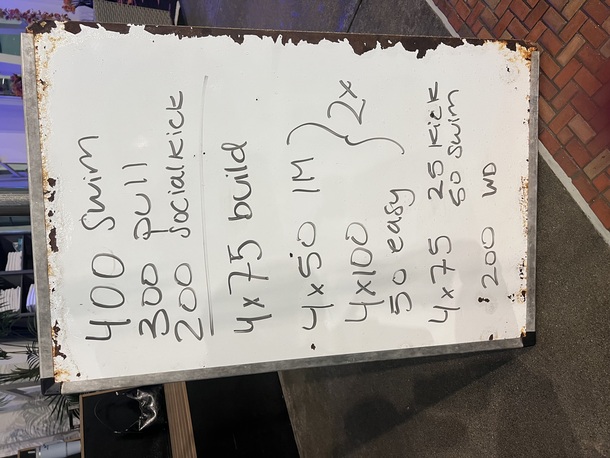 400 swim
300 pull
200 socialkick
4x75 build
4x50 IM } 2x
4x100
50 easy
4x75 25 kick
50 swim
200 WD